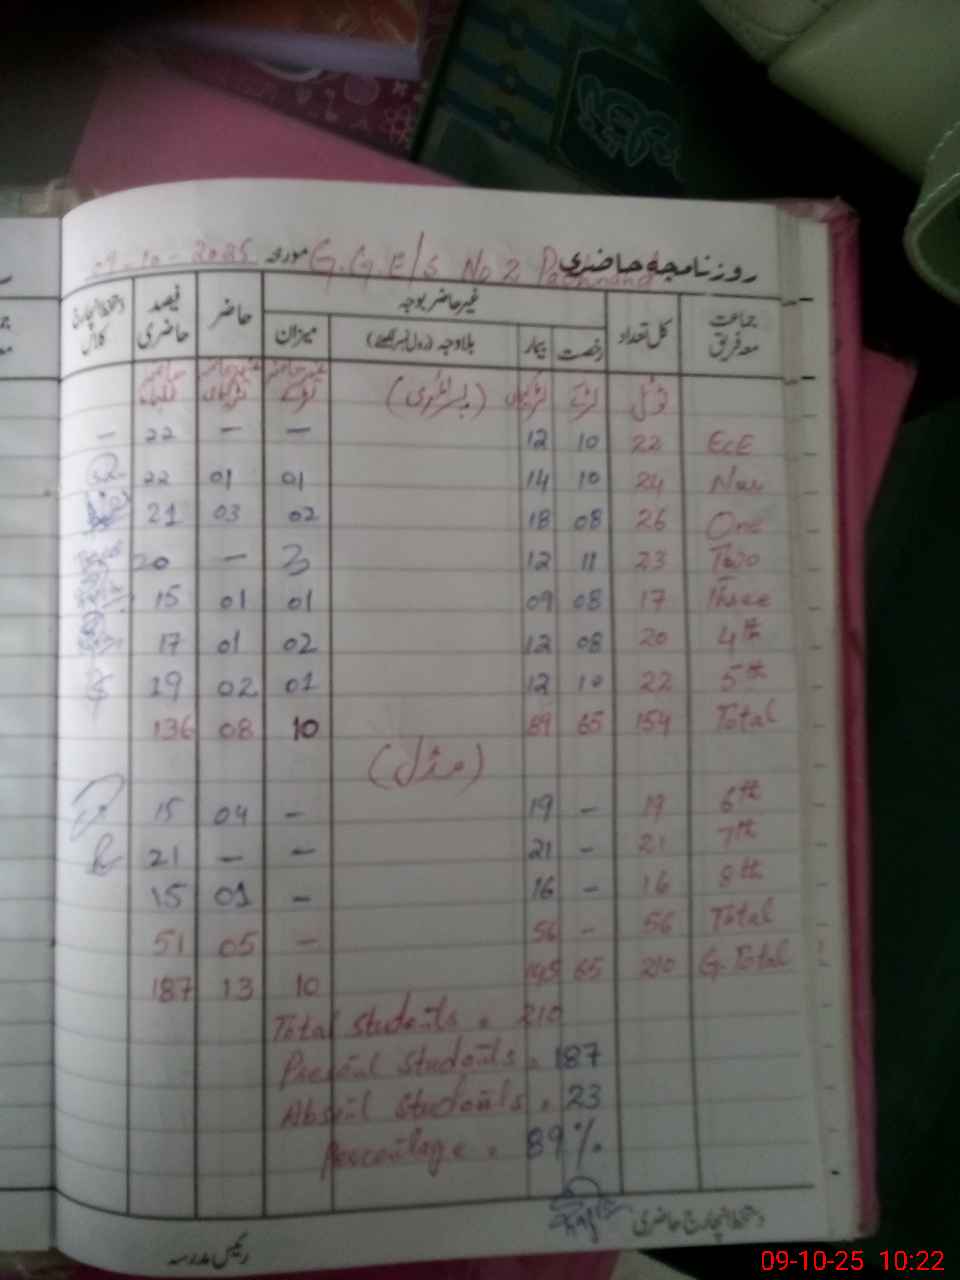 روزنامچہ حاضری G.G.E/S No 2 مورخہ 09-10-2025
جماعت معہ فریق کل تعداد غیر حاضر بوجہ حاضر فیصد حاضری دستخط انچارج کلاس
رخصت بیمار بلاوجہ (رول نمبر لکھیئے) میزان
ٹوٹل لڑکے لڑکیاں (پرائمری) غیر حاضر لڑکے غیر حاضر لڑکیاں حاضر
ECE 22 10 12 – – 22 –
Nur 24 10 14 01 01 22
One 26 08 18 02 03 21
Two 23 11 12 3 – 20
Three 17 08 09 01 01 15
4th 20 08 12 02 01 17
5th 22 10 12 01 02 19
Total 154 65 89 10 08 136
(مڈل)
6th 19 – 19 – 04 15
7th 21 – 21 – – 21
8th 16 – 16 – 01 15
Total 56 – 56 – 05 51
G.Total 210 65 145 10 13 187
Total students = 210
Present students = 187
Absent students = 23
Percentage = 89%
دستخط انچارج حاضری
رئیس مدرسہ
09-10-25 10:22